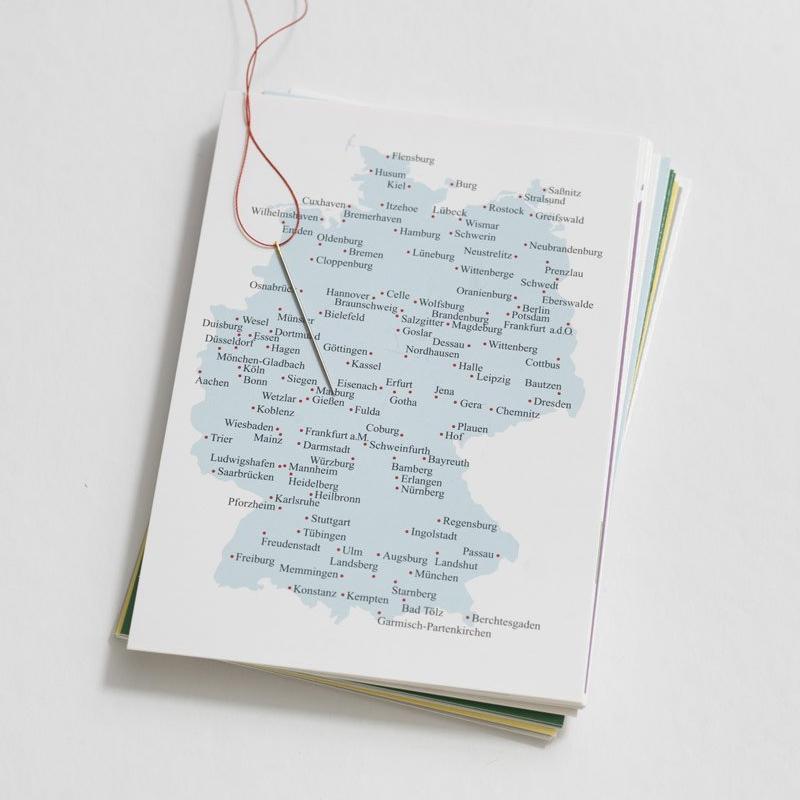 Flensburg
Husum
Kiel
Burg
Saßnitz
Stralsund
Cuxhaven
Itzehoe
Lübeck
Rostock
Greifswald
Wilhelmshaven
Bremerhaven
Wismar
Emden
Oldenburg
Hamburg
Schwerin
Neubrandenburg
Bremen
Lüneburg
Neustrelitz
Cloppenburg
Wittenberge
Prenzlau
Schwedt
Osnabrück
Hannover
Celle
Oranienburg
Eberswalde
Braunschweig
Wolfsburg
Berlin
Brandenburg
Potsdam
Münster
Bielefeld
Salzgitter
Magdeburg
Frankfurt a.d.O.
Duisburg
Wesel
Goslar
Dortmund
Essen
Düsseldorf
Hagen
Göttingen
Nordhausen
Dessau
Wittenberg
Mönchen-Gladbach
Kassel
Halle
Cottbus
Köln
Leipzig
Aachen
Bonn
Siegen
Eisenach
Erfurt
Jena
Bautzen
Marburg
Wetzlar
Gießen
Gotha
Gera
Dresden
Koblenz
Fulda
Chemnitz
Wiesbaden
Frankfurt a.M.
Coburg
Plauen
Hof
Trier
Mainz
Darmstadt
Schweinfurth
Ludwigshafen
Mannheim
Würzburg
Bamberg
Bayreuth
Saarbrücken
Heidelberg
Erlangen
Nürnberg
Heilbronn
Pforzheim
Karlsruhe
Stuttgart
Regensburg
Tübingen
Ingolstadt
Freudenstadt
Ulm
Augsburg
Landshut
Passau
Freiburg
Landsberg
Memmingen
München
Konstanz
Kempten
Starnberg
Bad Tölz
Berchtesgaden
Garmisch-Partenkirchen